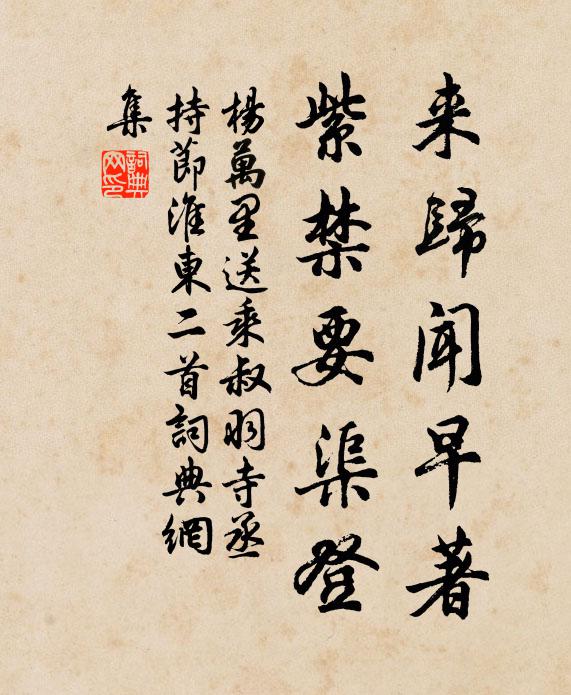 来歸聞早著
紫禁要渠登
楊萬里送乘叔羽寺丞
持節淮東二首詞典網
集
詞典
网印